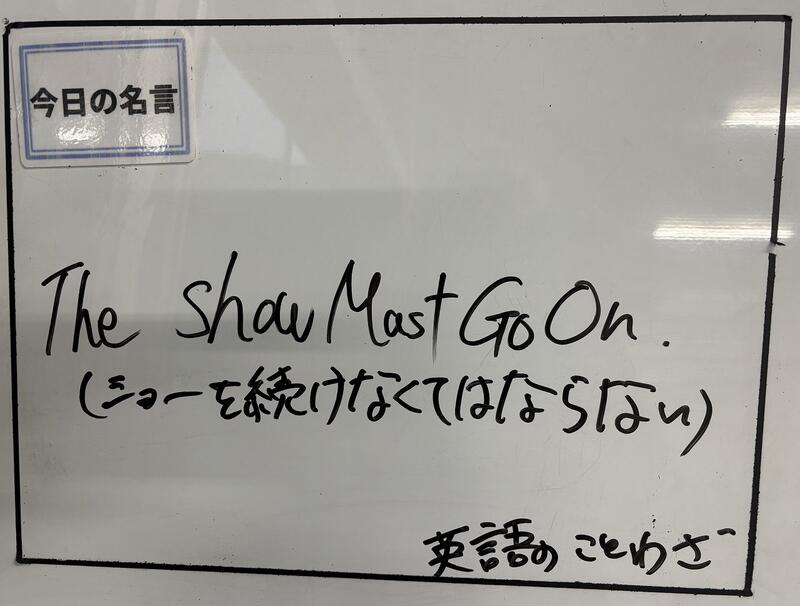 今日の名言
The Show Mast Go On.
(ショーを続けなくてはならない)
英語のことわざ